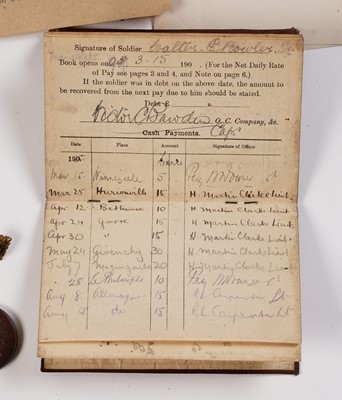 Signature of Soldier Walter E Bowler
Book opens on 3-15 190 . (For the Net Daily Rate
of Pay see pages 3 and 4, and Note on page 6.)
If the soldier was in debt on the above date, the amount to
be recovered from the next pay due to him should be stated.
Debt £
Victor C Bawden O.C. Company, &c.
Cash Payments. Capt
Date Place Amount Signature of Officer
190
Mar 15 5
Mar 25 15 H. Martin Clarke Lieut.
Apr 12 Bethune 10 H Martin Clarke Lieut
Apr 24 Gorre 15 H Martin Clarke Lieut
Apr 30 " 15 H. Martin Clarke Lieut.
May 24 Givenchy 30 H. Martin Clarke Lieut
July 7 20 H. Martin Clarke Lieut
" 28 Le Philosophe 10
Aug 8 15 R L Carpenter Lt
Aug 15 do 15 R.L. Carpenter Lt